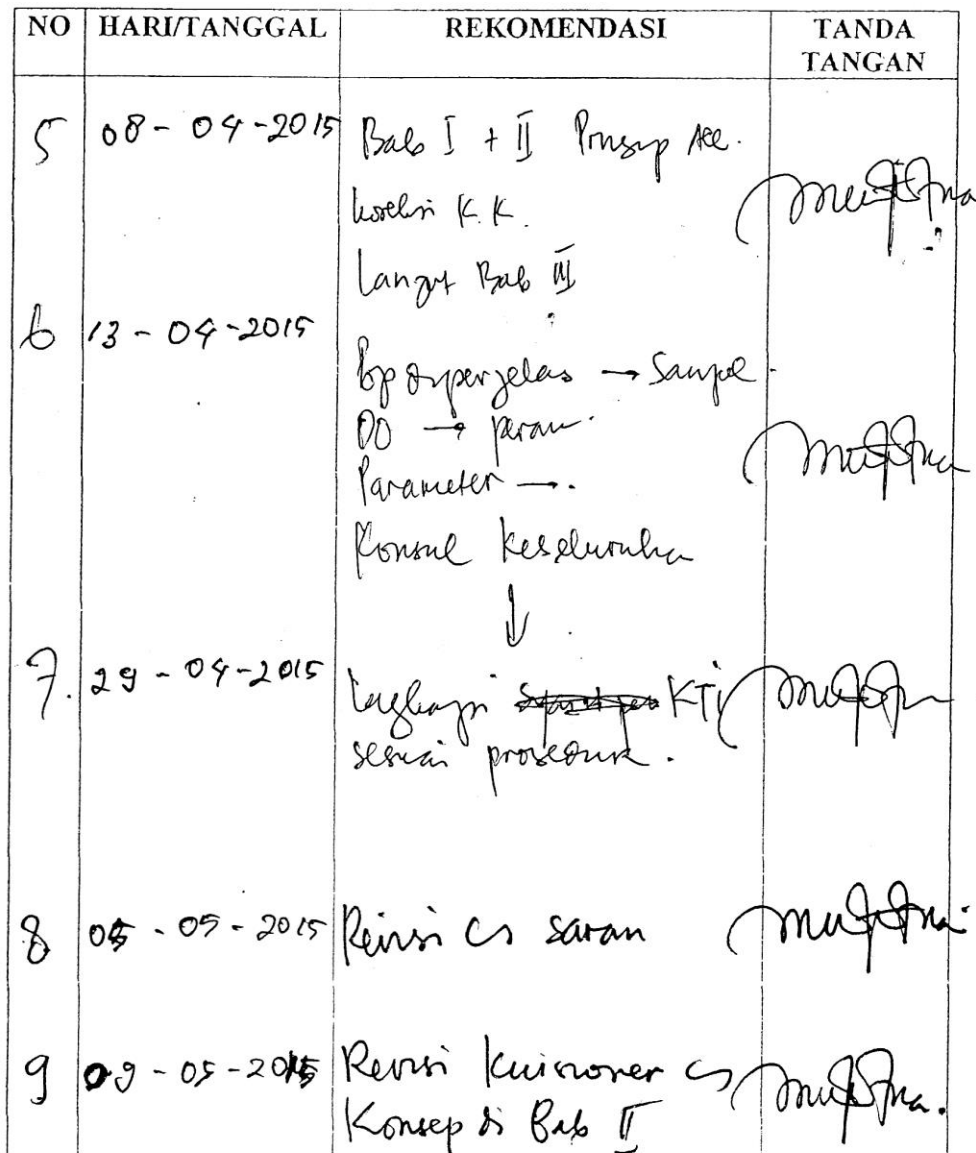 NO HARI/TANGGAL REKOMENDASI TANDA TANGAN
5 08-04-2015 Bab I + II Prinsip Acc.
koreksi K.K.
Lanjut Bab III
6 13-04-2015
diperjelas → Sampel.
DO → param.
Parameter →.
Konsul keseluruhan
↓
7. 29-04-2015 Lengkapi KTI
sesuai prosedur.
8 05-05-2015 Revisi cs saran
9 09-05-2015 Revisi kuisioner cs
Konsep di Bab II